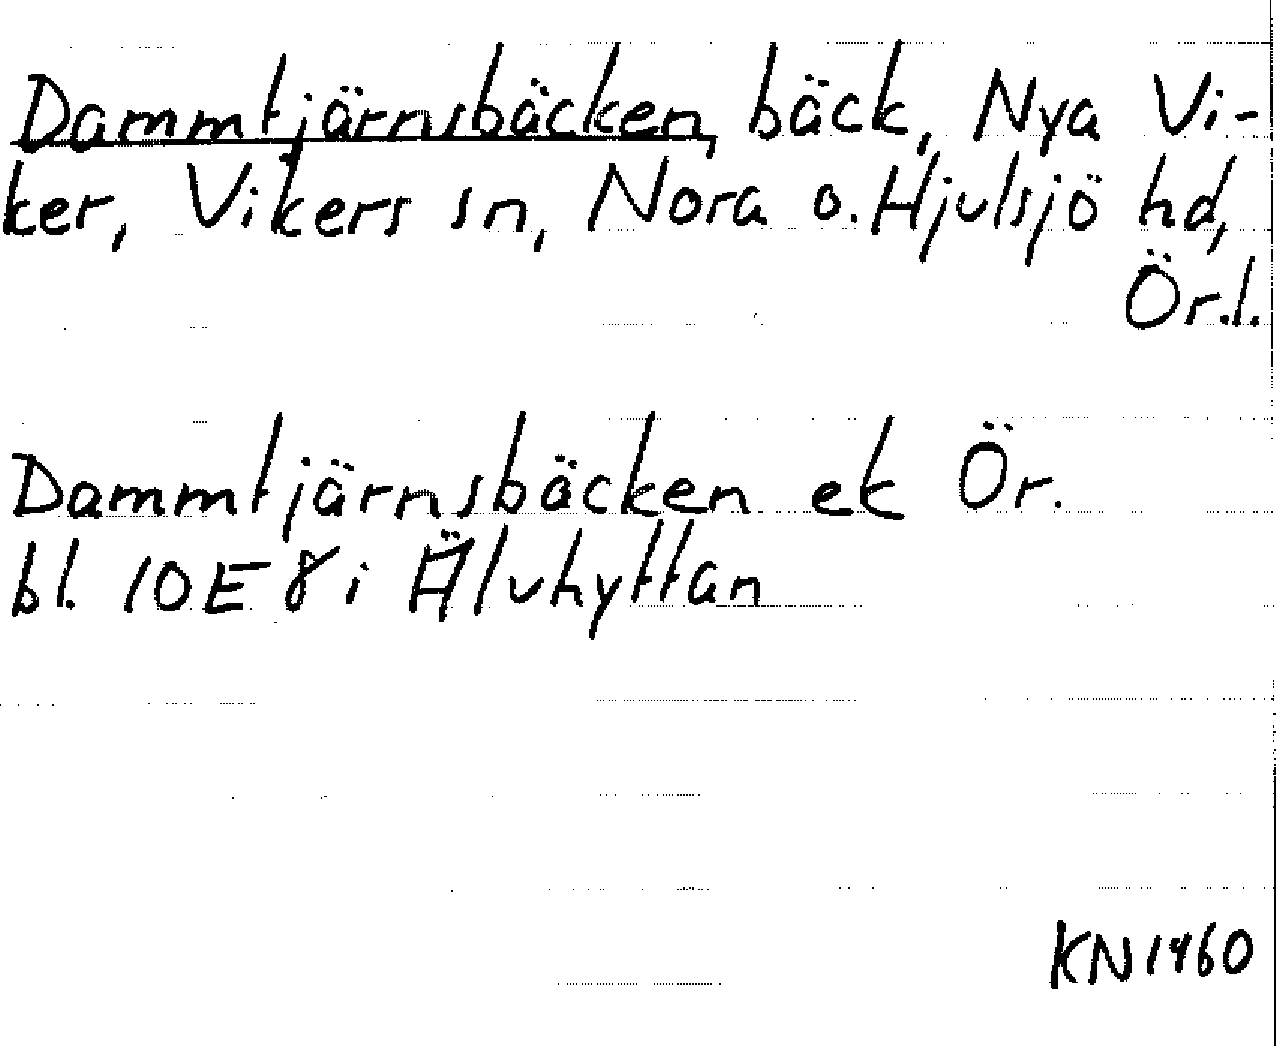 Dammtjärnsbäcken, bäck, Nya Vi-
ker, Vikers sn, Nora o. Hjulsjö hd,
Ör.l.
Dammtjärnsbäcken ek Ör.
bl. 10E8i Älvhyttan
KN1960